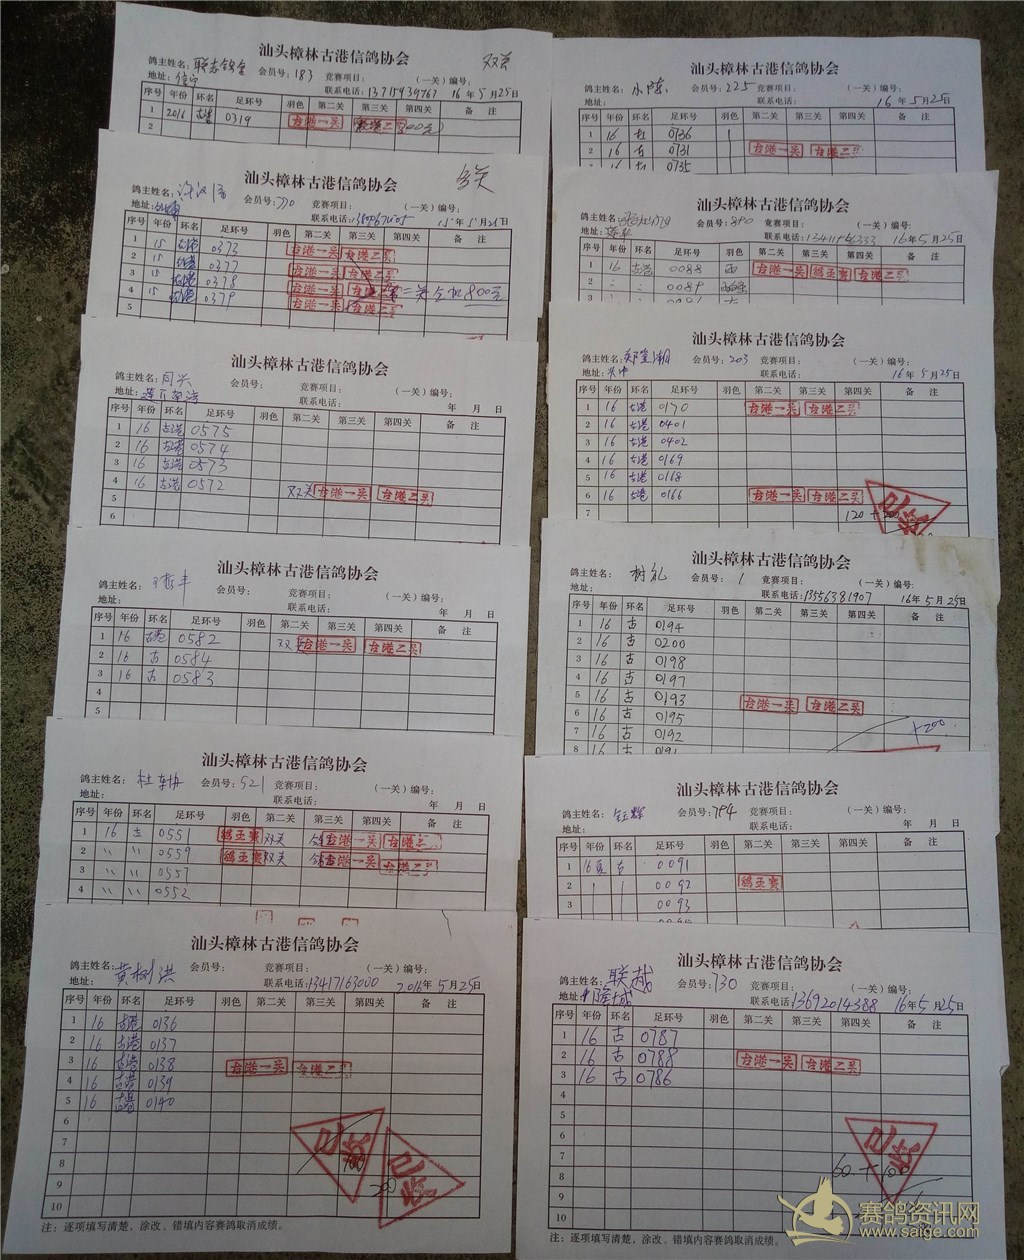 汕头樟林古港信鸽协会
双关
鸽主姓名: 会员号: 183 竞赛项目: (一关) 编号:
地址: 联系电话: 13715939767 16年5月25日
序号 年份 环名 足环号 羽色 第二关 第三关 第四关 备 注
1 2016 古港 0319 古港一关
2
汕头樟林古港信鸽协会
鸽主姓名: 会员号: 770 竞赛项目: (一关) 编号:
地址: 联系电话: 15年5月25日
序号 年份 环名 足环号 羽色 第二关 第三关 第四关 备 注
1 15 古港 0373 古港一关 古港二关
2 15 古港 0377 古港一关 古港二关
3 15 古港 0378 古港一关
4 15 古港 0379 古港一关 古港二关
5
汕头樟林古港信鸽协会
鸽主姓名: 同兴 会员号: 竞赛项目: (一关) 编号:
地址: 联系电话: 年 月 日
序号 年份 环名 足环号 羽色 第二关 第三关 第四关 备 注
1 16 古港 0575
2 16 古港 0574
3 16 古港 0573
4 16 古港 0572 双关 古港一关 古港二关
5
6
汕头樟林古港信鸽协会
鸽主姓名: 会员号: 竞赛项目: (一关) 编号:
地址: 联系电话: 年 月 日
序号 年份 环名 足环号 羽色 第二关 第三关 第四关 备 注
1 16 古港 0582 双关 古港一关 古港二关
2 16 古 0584
3 16 古 0583
4
5
汕头樟林古港信鸽协会
鸽主姓名: 会员号: 521 竞赛项目: (一关) 编号:
地址: 联系电话: 年 月 日
序号 年份 环名 足环号 羽色 第二关 第三关 第四关 备 注
1 16 古 0551 鸽王赛 双关 古港一关 古港二关
2 〃 〃 0559 鸽王赛 双关 古港一关 古港二关
3 〃 〃 0557
4 〃 〃 0552
汕头樟林古港信鸽协会
鸽主姓名: 黄树洪 会员号: 竞赛项目: (一关) 编号:
地址: 联系电话: 13417163000 2016年5月25日
序号 年份 环名 足环号 羽色 第二关 第三关 第四关 备 注
1 16 古港 0136
2 16 古港 0137
3 16 古港 0138 古港一关 古港二关
4 16 古港 0139
5 16 古港 0140
6
7 已收
8 100 已收
9 200
10
注:逐项填写清楚,涂改、错填内容赛鸽取消成绩。
汕头樟林古港信鸽协会
鸽主姓名: 会员号: 225 竞赛项目: (一关) 编号:
地址: 联系电话: 16年5月25日
序号 年份 环名 足环号 羽色 第二关 第三关 第四关 备 注
1 16 古 0736
2 16 古 0731 古港一关 古港二关
16 古 0735
汕头樟林古港信鸽协会
鸽主姓名: 会员号: 890 竞赛项目: (一关) 编号:
地址: 联系电话: 16年5月25日
序号 年份 环名 足环号 羽色 第二关 第三关 第四关 备 注
1 16 古港 0088 古港一关 鸽王赛 古港二关
2 0089
汕头樟林古港信鸽协会
鸽主姓名: 会员号: 203 竞赛项目: (一关) 编号:
地址: 联系电话: 16年5月25日
序号 年份 环名 足环号 羽色 第二关 第三关 第四关 备 注
1 16 古港 0170 古港一关 古港二关
2 16 古港 0401
3 16 古港 0402
4 16 古港 0169
5 16 古港 0168
6 16 古港 0166 古港一关 古港二关
7 120+200 已收
汕头樟林古港信鸽协会
鸽主姓名: 树礼 会员号: 1 竞赛项目: (一关) 编号:
地址: 联系电话: 13556381907 16年5月25日
序号 年份 环名 足环号 羽色 第二关 第三关 第四关 备 注
1 16 古 0194
2 16 古 0200
3 16 古 0198
4 16 古 0197
5 16 古 0193 古港一关 古港二关
6 16 古 0195
7 16 古 0192 +200
8 16 古 0191
汕头樟林古港信鸽协会
鸽主姓名: 会员号: 794 竞赛项目: (一关) 编号:
地址: 联系电话: 年 月 日
序号 年份 环名 足环号 羽色 第二关 第三关 第四关 备 注
1 16 古 0091
2 0092 鸽王赛
3 0093
汕头樟林古港信鸽协会
鸽主姓名: 联越 会员号: 730 竞赛项目: (一关) 编号:
地址: 隆城 联系电话: 13692014388 16年5月25日
序号 年份 环名 足环号 羽色 第二关 第三关 第四关 备 注
1 16 古 0787
2 16 古 0788 古港一关 古港二关
3 16 古 0786
4
5
6
7 已收
8 60+100
9
10
注:逐项填写清楚,涂改、错填内容赛鸽取消成绩。
赛鸽资讯网
www.saige.com